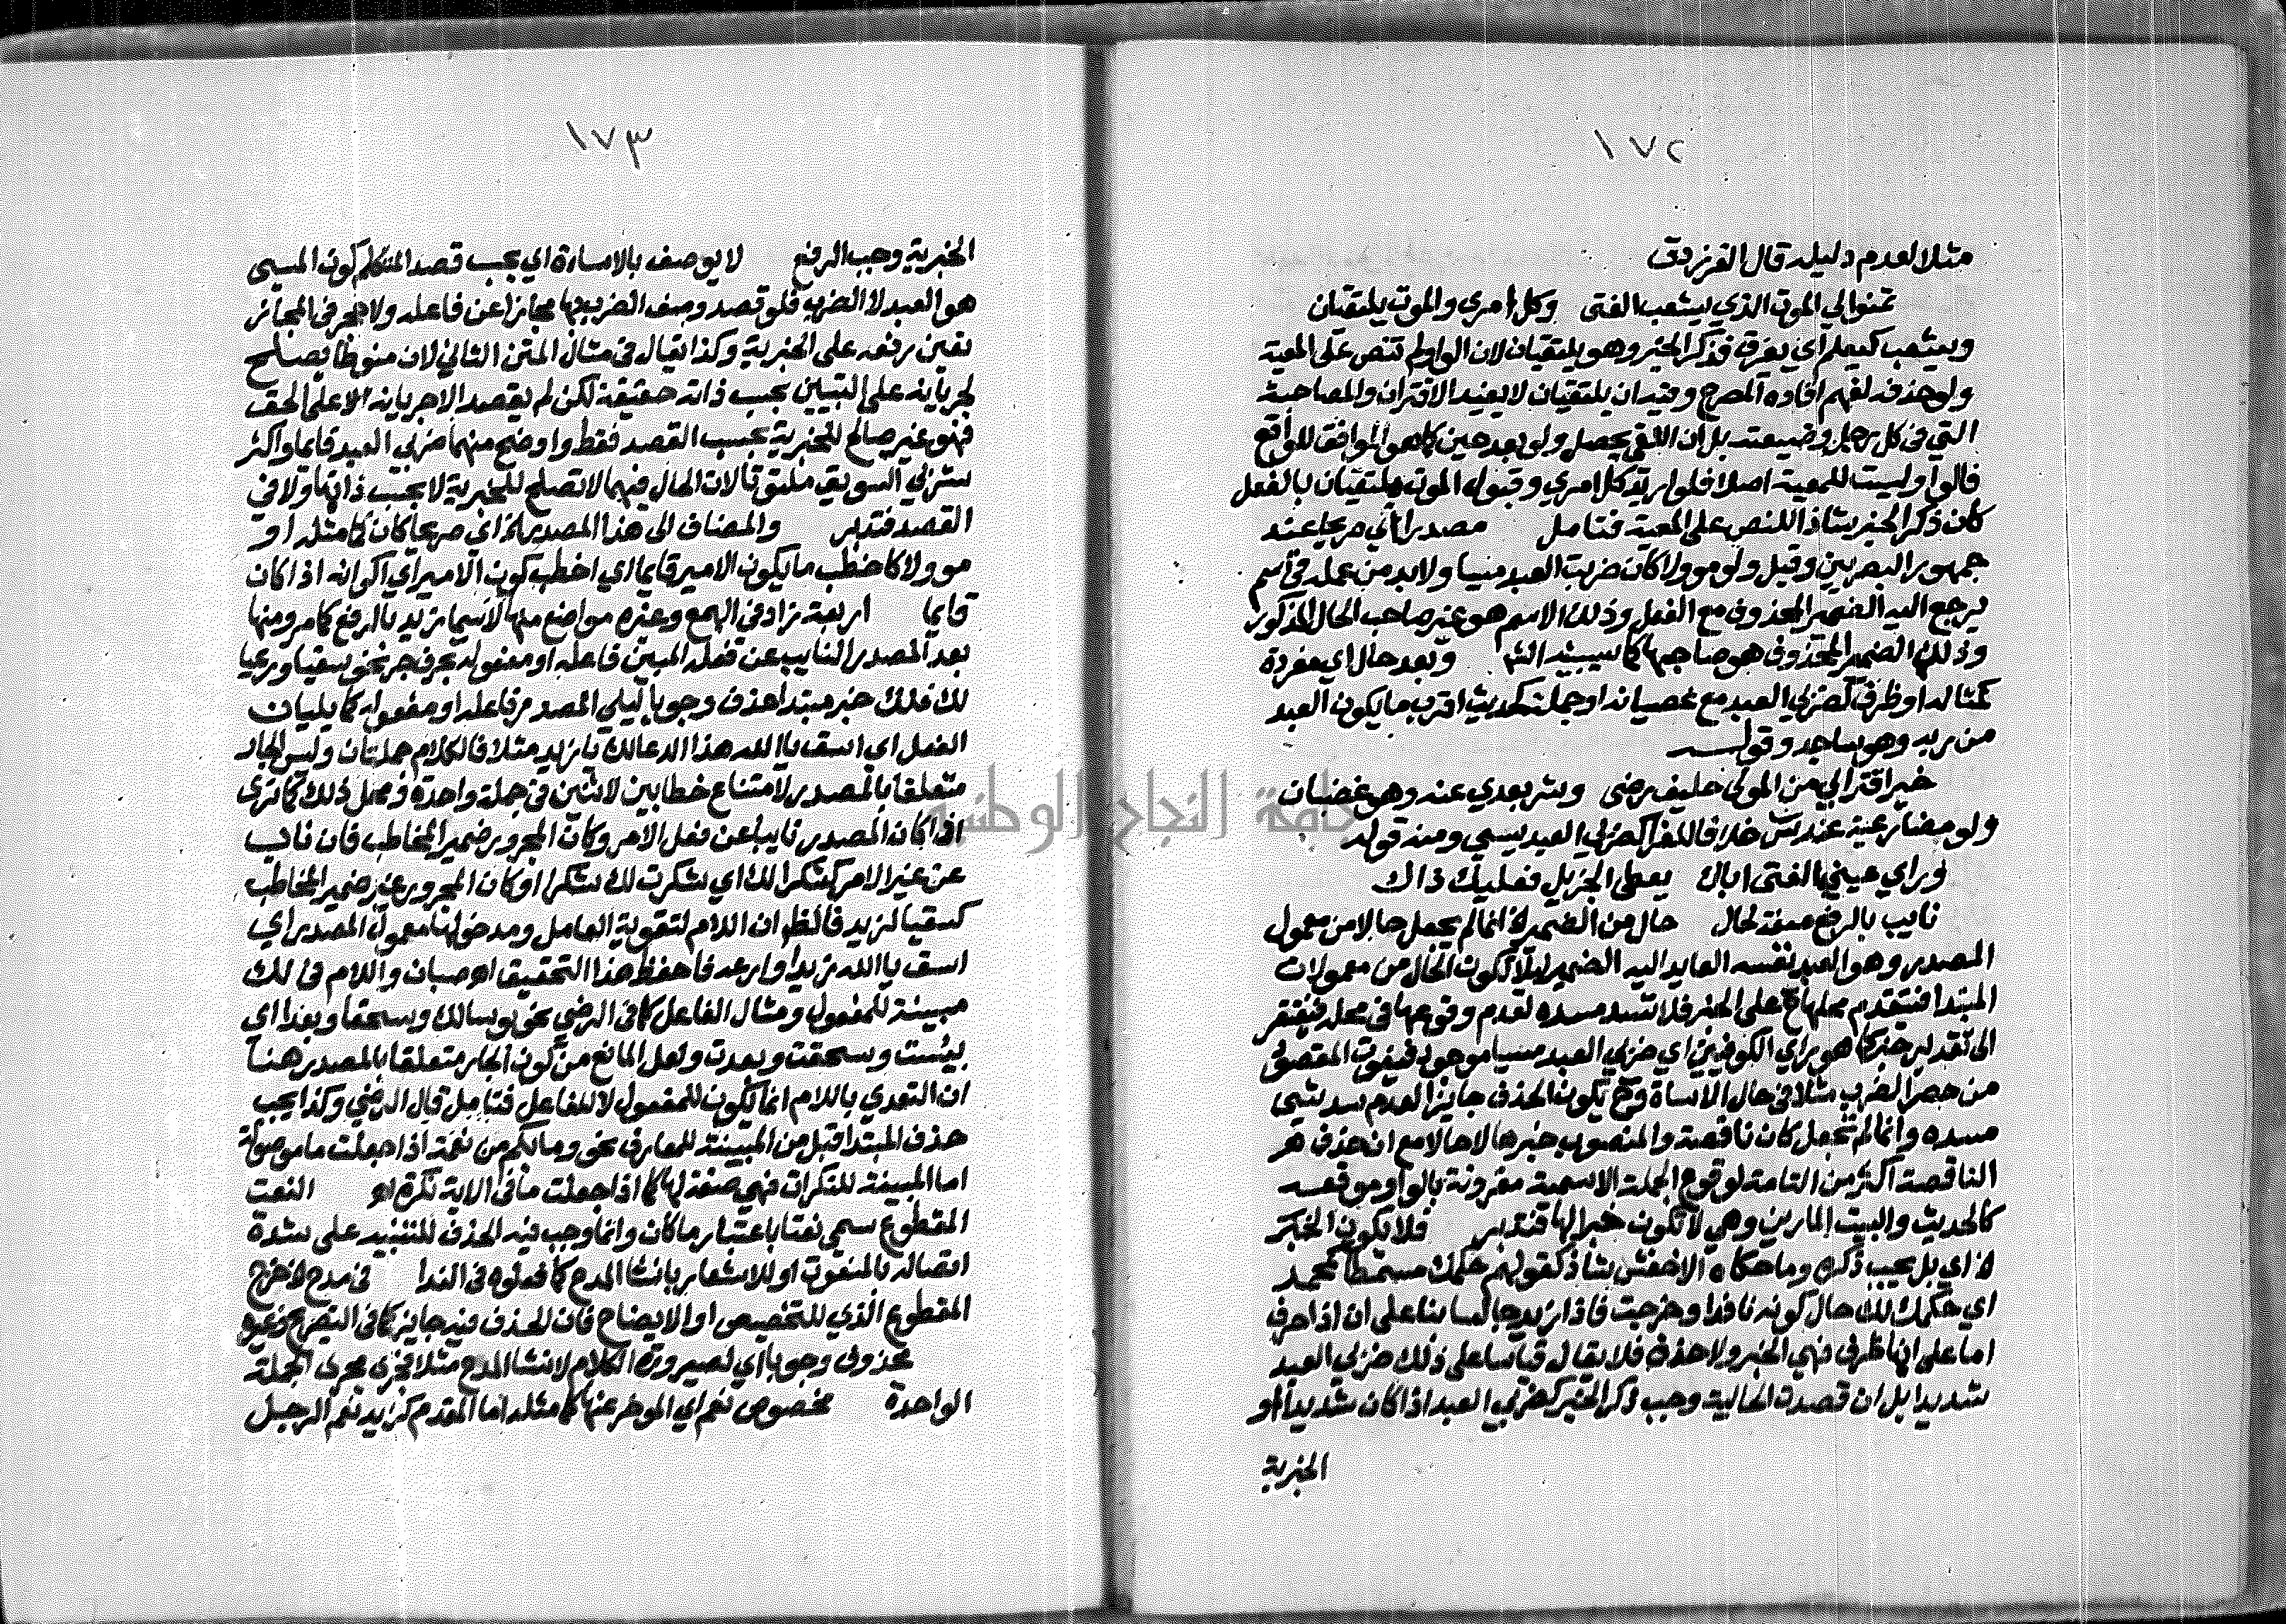 ١٧٢
مثلا لعدم دليله قال الفرزدق
تمنوا لي الموت الذي يشعب الفتى وكل امرى والموت يلتقيان
ويشعب كيعلم اي يفرق فذكر الخبر وهو يلتقيان لان الواو لم تنص على المعية
ولو حذفه لفهم افاده المصرح وفيه ان يلتقيان لا يفيد الاقتران والمصاحبة
التي في كل رجل وضيعته بل ان اللقى يحصل ولو بعد حين كما هو الموافق للواقع
قالوا وليست للمعية اصلا فلو اريد كل امري وقبوله الموت ملتقيان بالفعل
كان ذكر الخبر شاذا للنص على المعية فتامل مصدرا اي صريحا عند
جمهور البصريين وقيل ولو موولا كان ضربت العبد مسيا ولابد من عمله في اسم
يرجع اليه الضمير المحذوف مع الفعل وذلك الاسم هو غير صاحب الحال المذكور
وذلك الضمير المحذوف هو صاحبها كما سيبينه الش وبعد حال اي مفردة
كمثاله او ظرف كضربي العبد مع عصيانه او جملة كحديث اقرب ما يكون العبد
من ربه وهو ساجد وقوله
خير اقترابي من المولى حليف رضى وشر بعدي عنه وهو غضبان
ولو مضارعية عند س خلافا للفرا كضربي العبد يسي ومنه قوله
وراي عيني الفتى اباك يعطى الجزيل فعليك ذاك
نايب بالرفع صفة لحال حال من الضمير اذ انما لم يجعل حالا من معمول
المصدر وهو العبد نفسه العايد اليه الضمير ليلا تكون الحال من معمولات
المبتدا فتتقدم محلها على الخبر فلا تسد مسده لعدم وقوعها في محله فيفتقر
الى تقدير خبر كما هو راي الكوفيين اي ضربي العبد مسيا موجود فيفوت المقصود
من حصر الضرب مثلا في حال الاساة وح تكون الحذف جايزا لعدم سد شي
مسده وانما لم تجعل كان ناقصة والمنصوب خبرها لا حالا مع ان حذف
الناقصة اكثر من التامة لوقوع الجملة الاسمية مقرونة بالواو موقعه
كالحديث والبيت المارين وهي لا تكون خبرا لها فتدبر فلا يكون الخبر
اي بل يجب ذكره وما حكاه الاخفش شاذ كقولهم حكمك مسمطا
اي حكمك لك حال كونه نافذا وخرجت فاذا زيد جالسا بنا على ان اذا حرف
اما على انها ظرف فهي الخبر ولا حذف فلا يقال قياسا على ذلك ضربي العبد
شديدا بل ان قصدت الحالية وجب ذكر الخبر كضربي العبد اذا كان شديدا او
الخبرية
١٧٣
الخبرية وجب الرفع لا يوصف بالاساءة اي بحسب قصد المتكلم كون المسي
هو العبد لا الضرب فلو قصد وصف الضرب بها مجازا عن فاعله ولا حجر في المجاز
تعين رفعه على الخبرية وكذا يقال في مثال المتن الثاني لان منوطا يصلح
لجريانه على التبيين بحسب ذاته حقيقة لكن لم يقصد الا جريانه الا على الحق
فهو غير صالح للخبرية بحسب القصد فقط واوضح منهما ضربي العبد قايما واكثر
شربي السويق ملتوتا لان الحال فيهما لا تصلح للخبرية لا بحسب ذاتها ولا في
القصد فتدبر والمضاف الى هذا المصدر اي صريحا كان كما مثله او
موولا كاخطب ما يكون الامير قايما اي اخطب كون الامير اي اكوانه اذا كان
قايما اربعة زاد في الهمع وغيره مواضع منها لاسيما زيد بالرفع كما مر ومنها
بعد المصدر النايب عن فعله المبين فاعله او مفعوله بحرف جر نحو سقيا ورعيا
لك فلك خبر مبتدا حذف وجوبا ليلي المصدر فاعله او مفعوله كما يليان
الفعل اي اسق يا الله هذا الدعا لك يا زيد مثلا فالكلام جملتان وليس الجار
متعلقا بالمصدر لامتناع خطابين لاثنين في جملة واحدة ومحل ذلك كما ترى
اذا كان المصدر نايبا عن فعل الامر وكان المجرور ضمير المخاطب فان ناب
عن غير الامر كشكرا لك اي شكرت لك شكرا او كان المجرور غير ضمير المخاطب
كسقيا لزيد فالظ ان اللام لتقوية العامل ومدخولها معمول المصدر اي
اسق يا الله زيدا وارعه فاحفظ هذا التحقيق اه صبان واللام في لك
مبينة للمفعول ومثال الفاعل كما في الرضي نحو بوسا لك وسحقا وبعدا اي
بيئست وسحقت وبعدت ولعل المانع من كون الجار متعلقا بالمصدر هنا
ان التعدي باللام انما تكون للمفعول لا للفاعل فتامل قال الرضي وكذا يجب
حذف المبتدا قبل من المبينة للمعارف نحو وما بكم من نعمة اذا جعلت ما موصولة
اما المبينة للنكرات فهي صفة لها كما اذا جعلت ما في الاية نكرة اه النعت
المقطوع سمي نعتا باعتبار ما كان وانما وجب فيه الحذف للتنبيه على شدة
اتصاله بالمنعوت او للاشعار بانشا المدح كما فعلوه في الندا في مدح الخ خرج
المقطوع الذي للتخصيص او الايضاح فان الحذف فيه جايز كما في التصريح وغيره
محذوف وجوبا اي لصيرورة الكلام لانشا المدح مثلا فجرى مجرى الجملة
الواحدة مخصوص نعم اي الموخر عنها كما مثله اما المقدم كزيد نعم الرجل